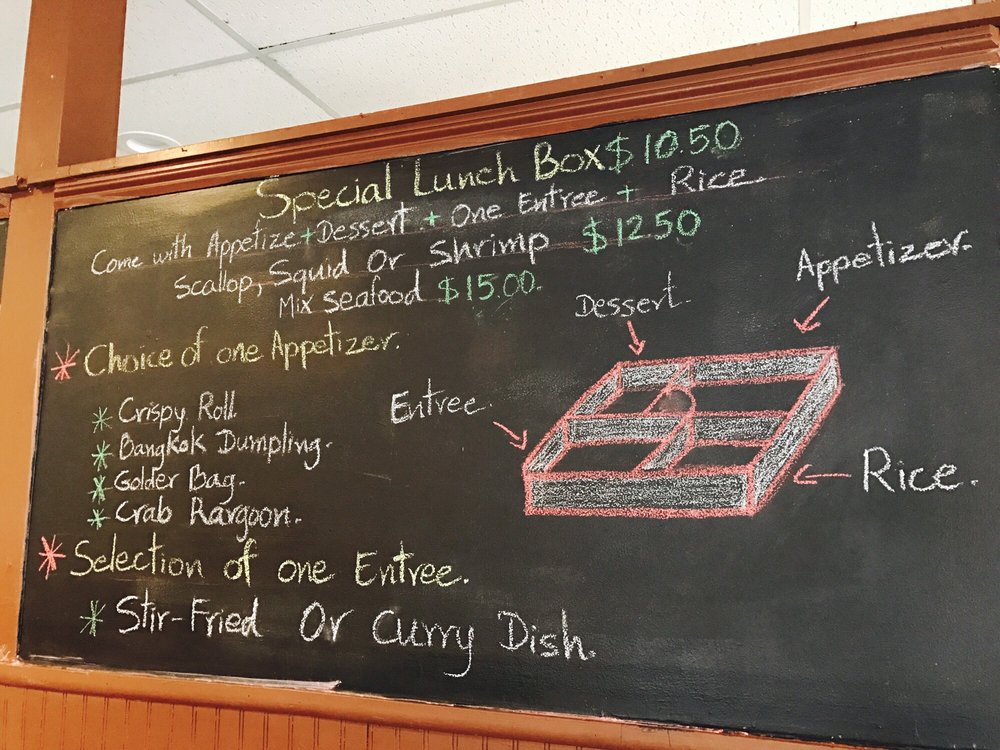 Special Lunch Box $10.50
Come with Appetize + Dessert + One Entree + Rice.
Scallop, Squid Or Shrimp $12.50
Mix Seafood $15.00.
* Choice of one Appetizer.
* Crispy Roll
* Bangkok Dumpling.
* Golder Bag.
* Crab Rargoon.
* Selection of one Entree.
* Stir-Fried Or Curry Dish.
Dessert.
Appetizer.
Entree.
Rice.